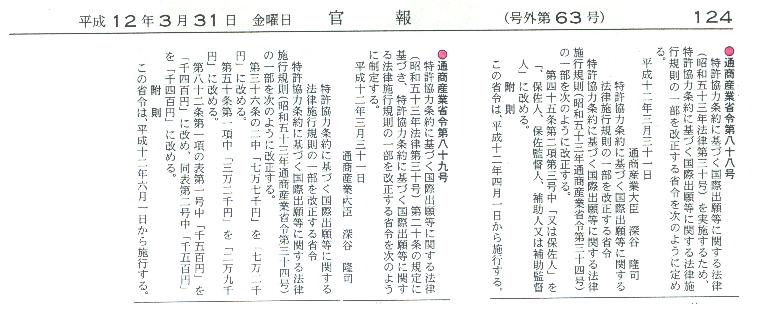 平成12年3月31日 金曜日 官報 (号外第63号) 124
●通商産業省令第八十八号
特許協力条約に基づく国際出願等に関する法律
(昭和五十三年法律第三十号)を実施するため、
特許協力条約に基づく国際出願等に関する法律施
行規則の一部を改正する省令を次のように定め
る。
平成十二年三月三十一日
通商産業大臣 深谷 隆司
特許協力条約に基づく国際出願等に関する
法律施行規則の一部を改正する省令
特許協力条約に基づく国際出願等に関する法律
施行規則(昭和五十三年通商産業省令第三十四号)
の一部を次のように改正する。
第四十五条第二項第三号中「又は保佐人」を
「、保佐人、保佐監督人、補助人又は補助監督
人」に改める。
附則
この省令は、平成十二年四月一日から施行する。
●通商産業省令第八十九号
特許協力条約に基づく国際出願等に関する法律
(昭和五十三年法律第三十号)第二十条の規定に
基づき、特許協力条約に基づく国際出願等に関す
る法律施行規則の一部を改正する省令を次のよう
に制定する。
平成十二年三月三十一日
通商産業大臣 深谷 隆司
特許協力条約に基づく国際出願等に関する
法律施行規則の一部を改正する省令
特許協力条約に基づく国際出願等に関する法律
施行規則(昭和五十三年通商産業省令第三十四号)
の一部を次のように改正する。
第三十六条の二中「七万七千円」を「七万二千
円」に改める。
第五十条第一項中「三万二千円」を「二万九千
円」に改める。
第八十二条第一項の表第一号中「千五百円」を
「千四百円」に改め、同表第二号中「千五百円」
を「千四百円」に改める。
附則
この省令は、平成十二年六月一日から施行する。